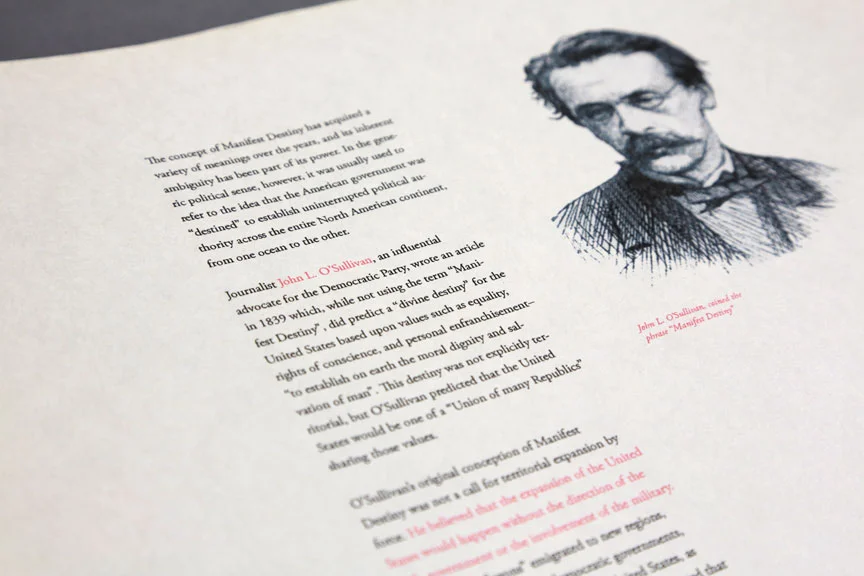 The concept of Manifest Destiny has acquired a
variety of meanings over the years, and its inherent
ambiguity has been part of its power. In the gene-
ric political sense, however, it was usually used to
refer to the idea that the American government was
“destined” to establish uninterrupted political au-
thority across the entire North American continent,
from one ocean to the other.
Journalist John L. O’Sullivan, an influential
advocate for the Democratic Party, wrote an article
in 1839 which, while not using the term “Mani-
fest Destiny” , did predict a “divine destiny” for the
United States based upon values such as equality,
rights of conscience, and personal enfranchisement–
“to establish on earth the moral dignity and sal-
vation of man”. This destiny was not explicitly ter-
ritorial, but O’Sullivan predicted that the United
States would be one of a “Union of many Republics”
sharing those values.
O’Sullivan’s original conception of Manifest
Destiny was not a call for territorial expansion by
force. He believed that the expansion of the United
States would happen without the direction of the
government or the involvement of the military.
emigrated to new regions,
democratic governments,
States, as
that
John L. O’Sullivan, coined the
phrase “Manifest Destiny”